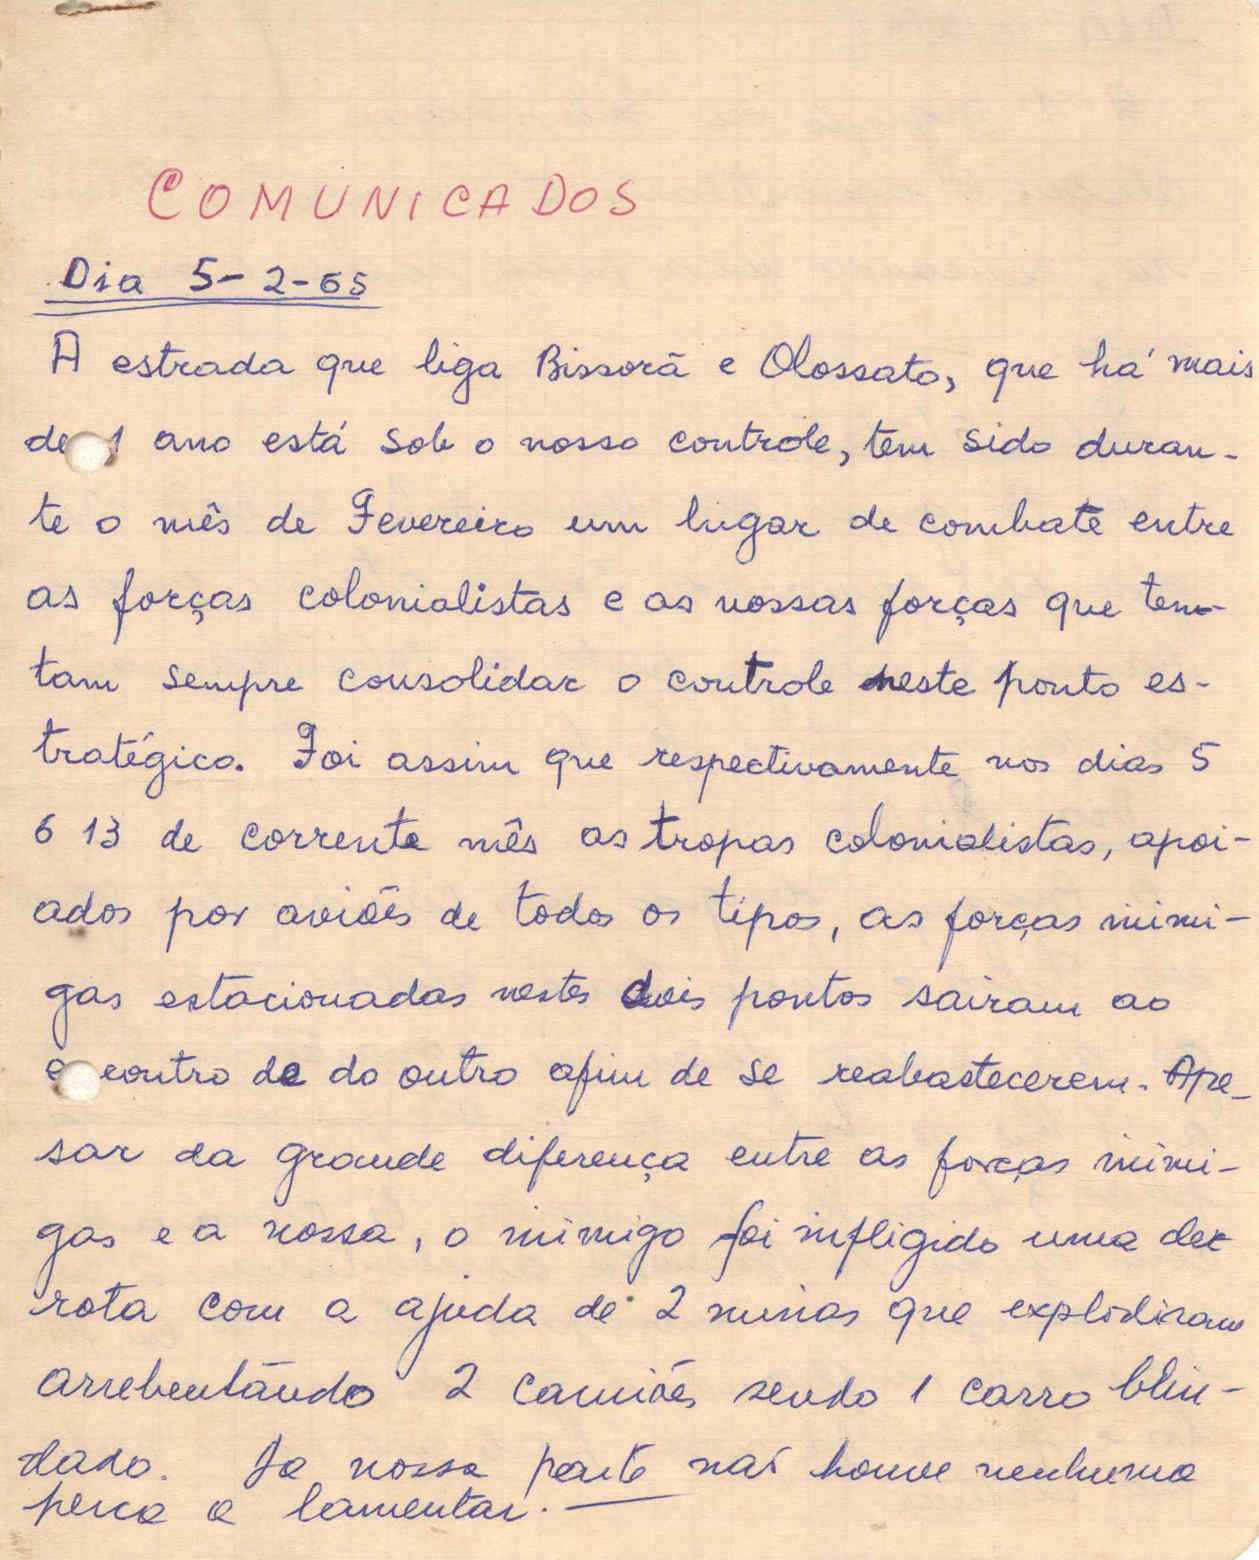 COMUNICADOS
Dia 5-2-65
A estrada que liga Bissorã e Olossato, que há mais
de 1 ano está sob o nosso controle, tem sido duran-
te o mês de Fevereiro um lugar de combate entre
as forças colonialistas e as nossas forças que ten-
tam sempre consolidar o controle neste ponto es-
tratégico. Foi assim que respectivamente nos dias 5
6 13 de corrente mês as tropas colonialistas, apoi-
ados por aviões de todos os tipos, as forças inimi-
gas estacionadas nestes dois pontos sairam ao
encontro de do outro afim de se reabastecerem. Ape-
sar da grande diferença entre as forças inimi-
gas e a nossa, o inimigo foi infligido uma der
rota com a ajuda de 2 minas que explodiram
arrebentando 2 camiões sendo 1 carro blin-
dado. Da nossa parte não houve nenhuma
perca a lamentar.